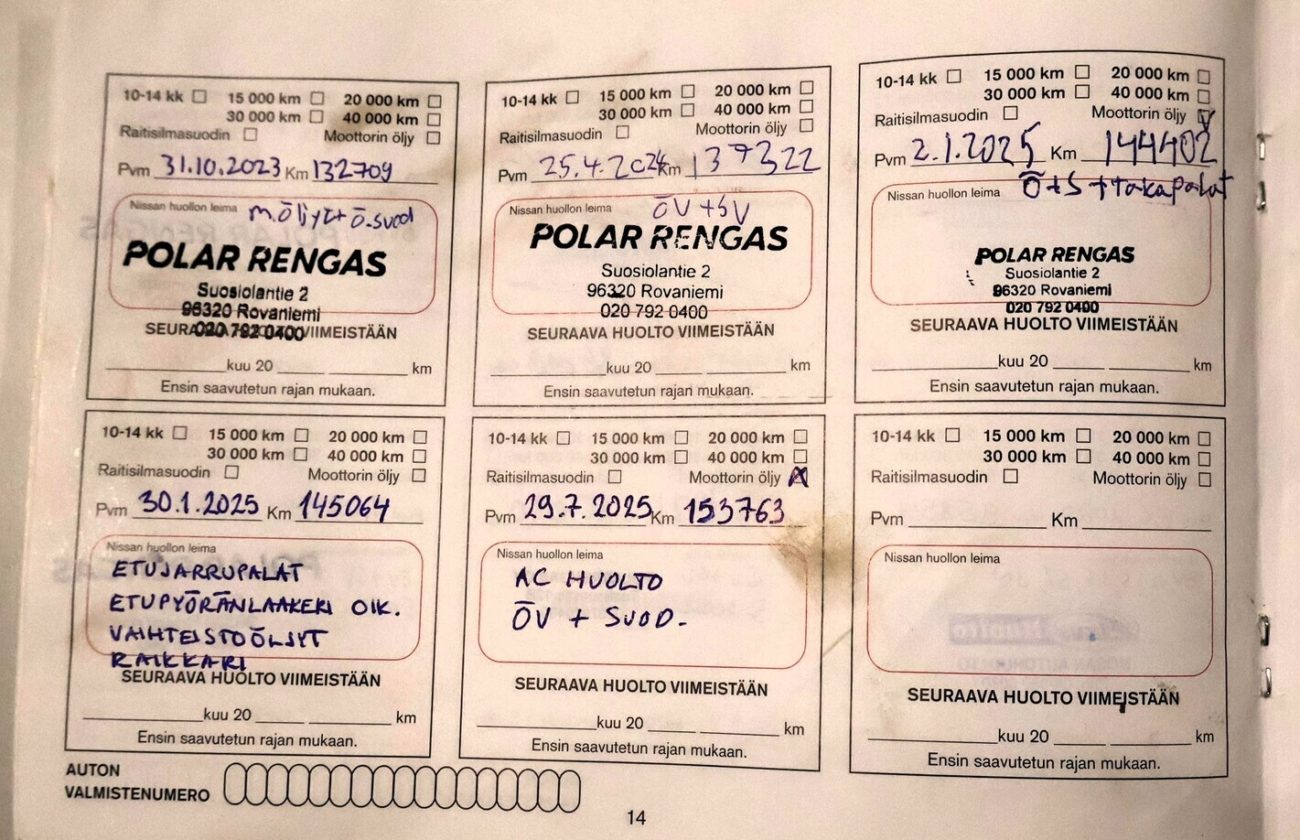 10-14 kk 15 000 km 20 000 km
30 000 km 40 000 km
Raitisilmasuodin Moottorin öljy
Pvm 31.10.2023 Km 132709
Nissan huollon leima m.öljyt+ ö.suod
POLAR RENGAS
Suosiolantie 2
96320 Rovaniemi
020 792 0400
SEURAAVA HUOLTO VIIMEISTÄÄN
kuu 20 km
Ensin saavutetun rajan mukaan.
10-14 kk 15 000 km 20 000 km
30 000 km 40 000 km
Raitisilmasuodin Moottorin öljy
Pvm 25.4.2024 Km 137322
Nissan huollon leima ÖV +SV
POLAR RENGAS
Suosiolantie 2
96320 Rovaniemi
020 792 0400
SEURAAVA HUOLTO VIIMEISTÄÄN
kuu 20 km
Ensin saavutetun rajan mukaan.
10-14 kk 15 000 km 20 000 km
30 000 km 40 000 km
Raitisilmasuodin Moottorin öljy
Pvm 2.1.2025 Km 144402
Nissan huollon leima Ö+S +takapalat
POLAR RENGAS
Suosiolantie 2
96320 Rovaniemi
020 792 0400
SEURAAVA HUOLTO VIIMEISTÄÄN
kuu 20 km
Ensin saavutetun rajan mukaan.
10-14 kk 15 000 km 20 000 km
30 000 km 40 000 km
Raitisilmasuodin Moottorin öljy
Pvm 30.1.2025 Km 145064
Nissan huollon leima
ETUJARRUPALAT
ETUPYÖRÄNLAAKERI OIK.
VAIHTEISTOÖLJYT
RAIKKARI
SEURAAVA HUOLTO VIIMEISTÄÄN
kuu 20 km
Ensin saavutetun rajan mukaan.
10-14 kk 15 000 km 20 000 km
30 000 km 40 000 km
Raitisilmasuodin Moottorin öljy X
Pvm 29.7.2025 Km 153763
Nissan huollon leima
AC HUOLTO
ÖV + SUOD.
SEURAAVA HUOLTO VIIMEISTÄÄN
kuu 20 km
Ensin saavutetun rajan mukaan.
10-14 kk 15 000 km 20 000 km
30 000 km 40 000 km
Raitisilmasuodin Moottorin öljy
Pvm Km
Nissan huollon leima
SEURAAVA HUOLTO VIIMEISTÄÄN
kuu 20 km
Ensin saavutetun rajan mukaan.
AUTON
VALMISTENUMERO
14